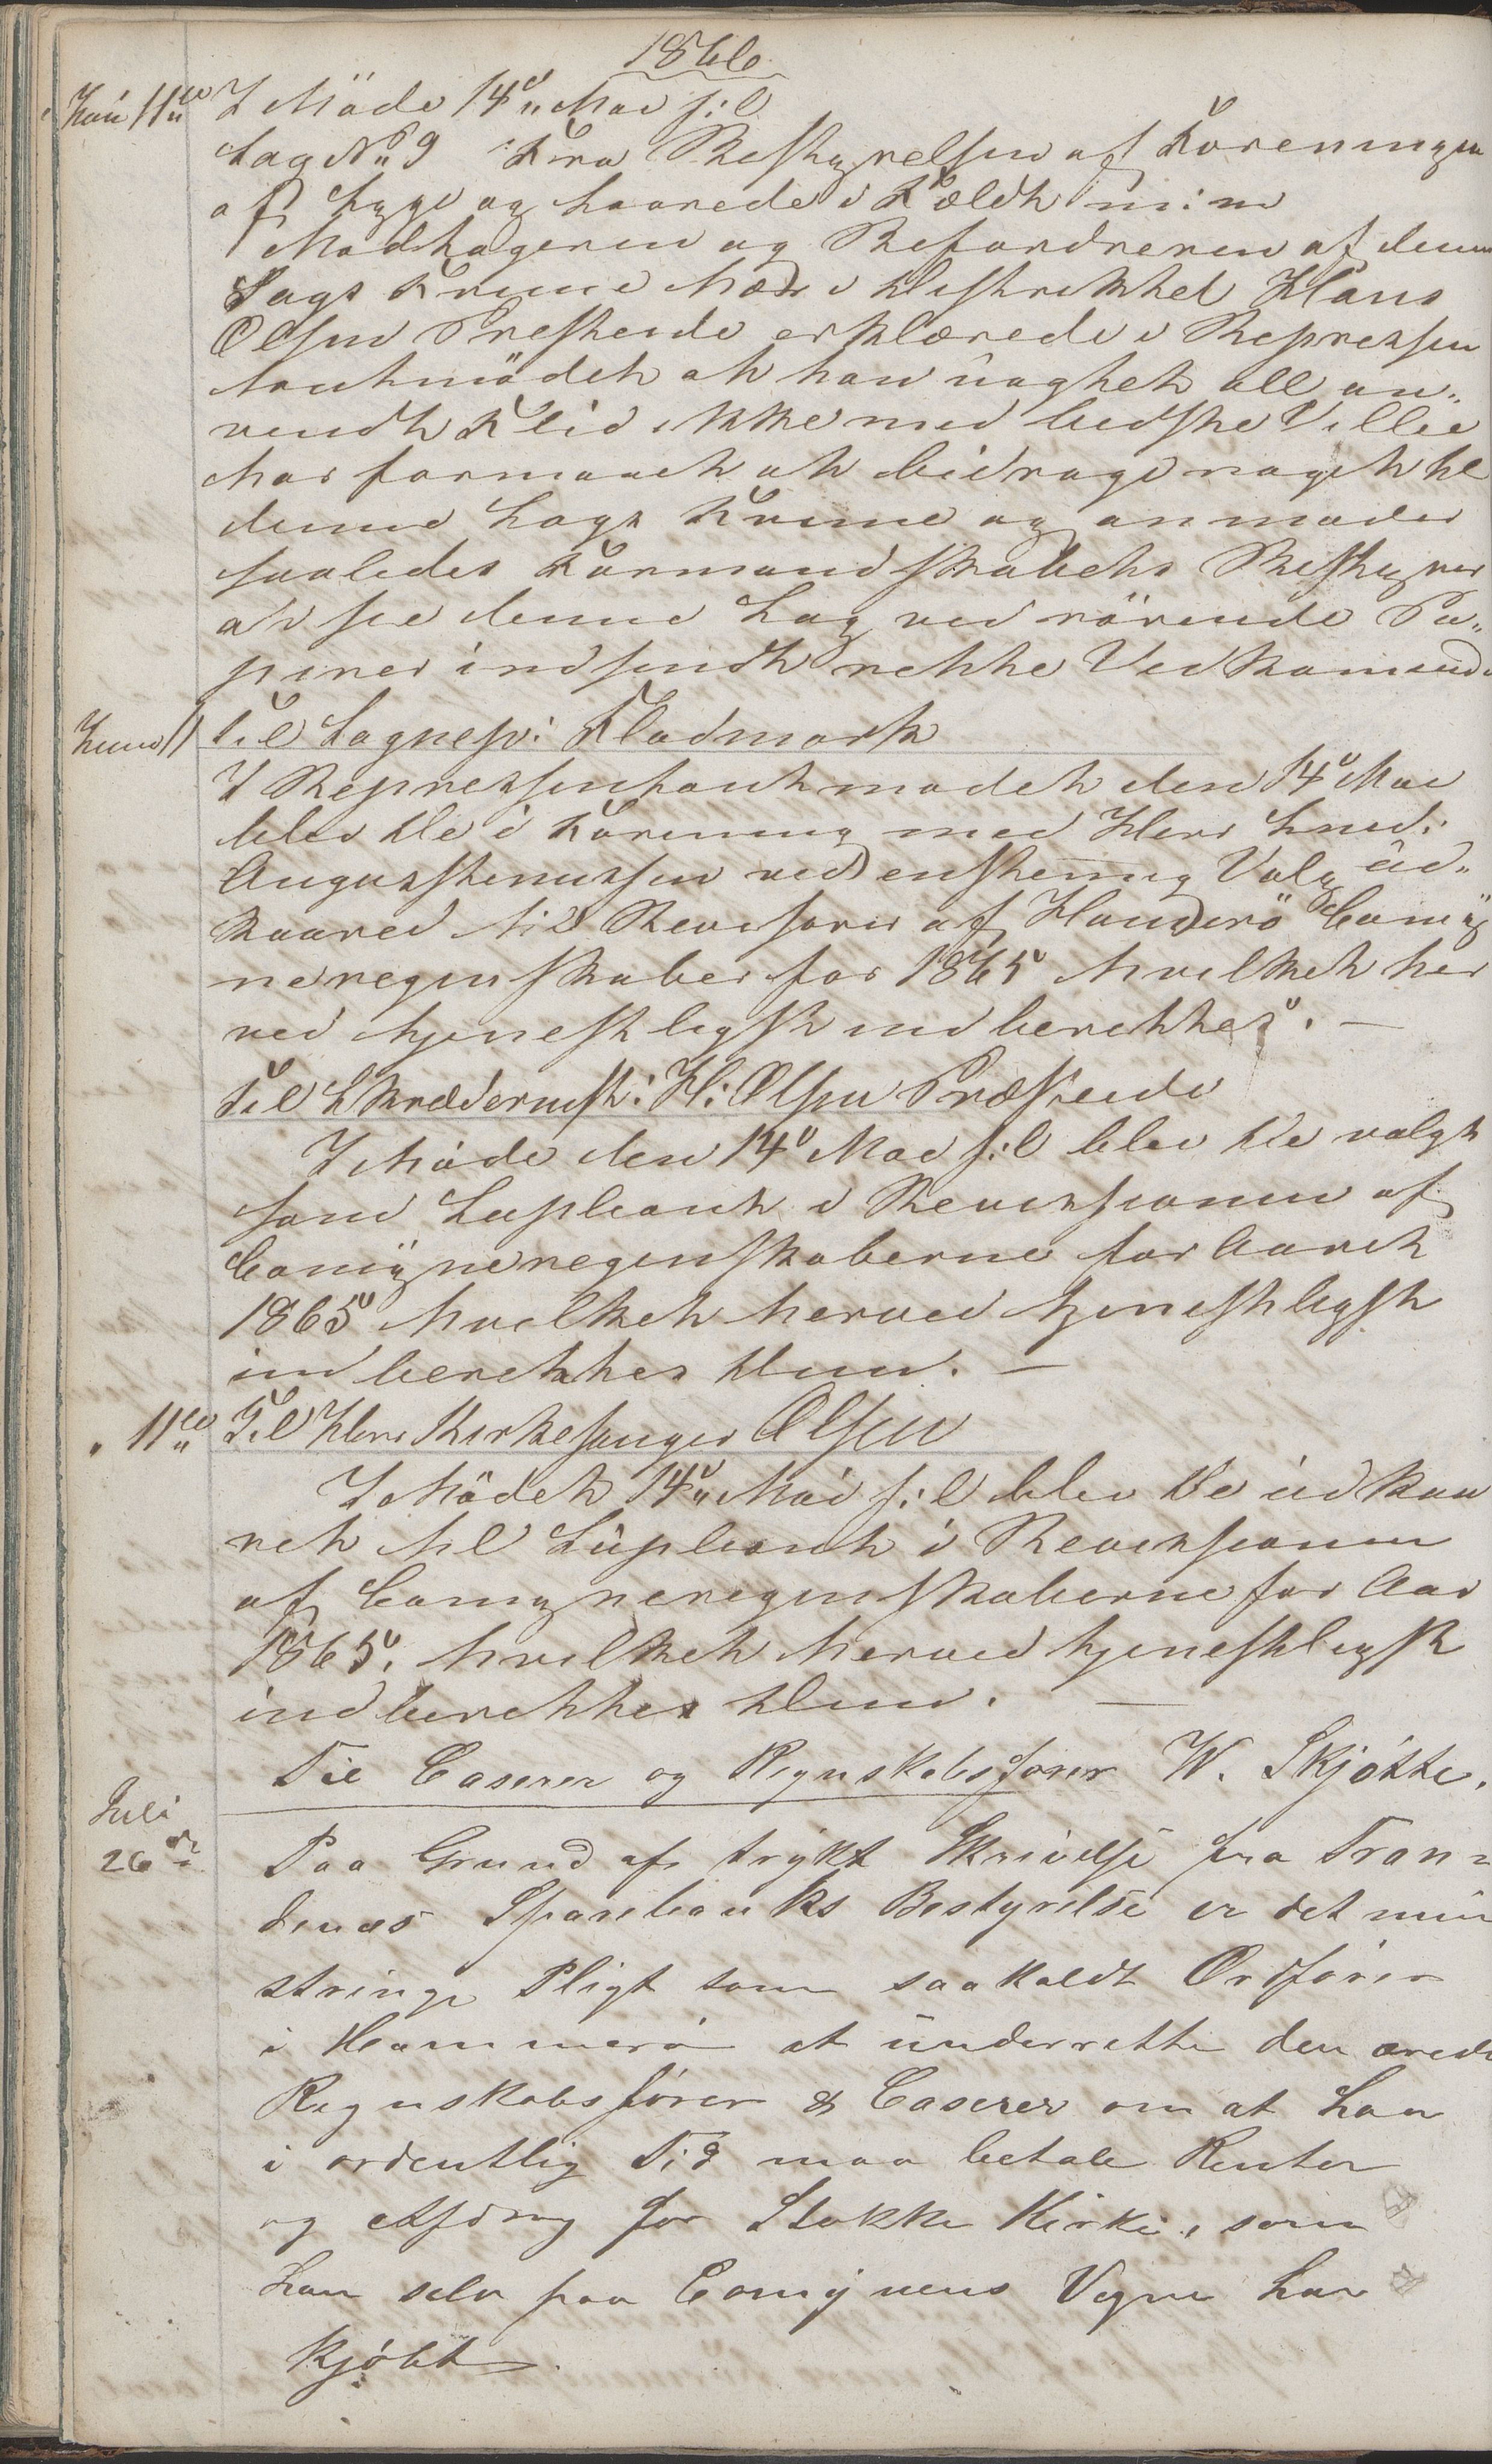 1866
Juni 11te I Möde 14de Mai s: l
Sag No 9 Fra Bestyrelsen af Foreningen
af Syge og Saarede i Feldt m: m
Modtageren og Befordreren af denne
Sags Fremme her i Distriktet Hans
Olsen Presteide erklærede i Repressen
tantmödet at han uagtet all an„
vendt Flid ikke med bedste Villie
har formaaet at bidrage noget til
denne Sags Fremme og anmoder
saaledes Formandskabets Bestyrer
at see denne Sag ved rörende Pa„
pirer indsendt rette Vedkommende
Juni 11 Til Sagnepr: Fladmark
I Repressentantmödet den 14de Mai
blev De i Forening med Herr Lind:
Augustenussen ved enstemmig Valg ud„
kaared til Revisorer af Hamerö Comü
neregenskaber for 1865 hvilket her
ved tjenestligst indberettes. —
Til Skrædermst: H: Olsen Præsteide
I Möde den 14de Mai s: l blev De valgt
som Supleant i Revissionen af
Comüneregenskaberne for Aaret
1865 hvilket herved tjenestligst
indberettes Dem. —
" 11te Til Herr Kirkesanger Olsen
I Mödet 14de Mai s: l blev De udkaa
ret til Supleant i Revissionen
af Comüneregenskaberne for Aar
1865. hvilket herved tjenestligst
indberettes Dem. —
Til Caserer og Regnskabsfører W. Skjötte.
Juli
26de Paa Grund af trykt Skrivelse fra Tron=
denæs Sparebanks Bestyrelse er det min
stringe Pligt som saakaldt Ordförer
i Hammerö at ünderrette den ærede
Regnskabsförer & Caserer om at han
i ordentlig Tid maa betale Renter
og Afdrag for Stokke Kirke, som
han selv paa Comünens Vegne har
kjöbt.